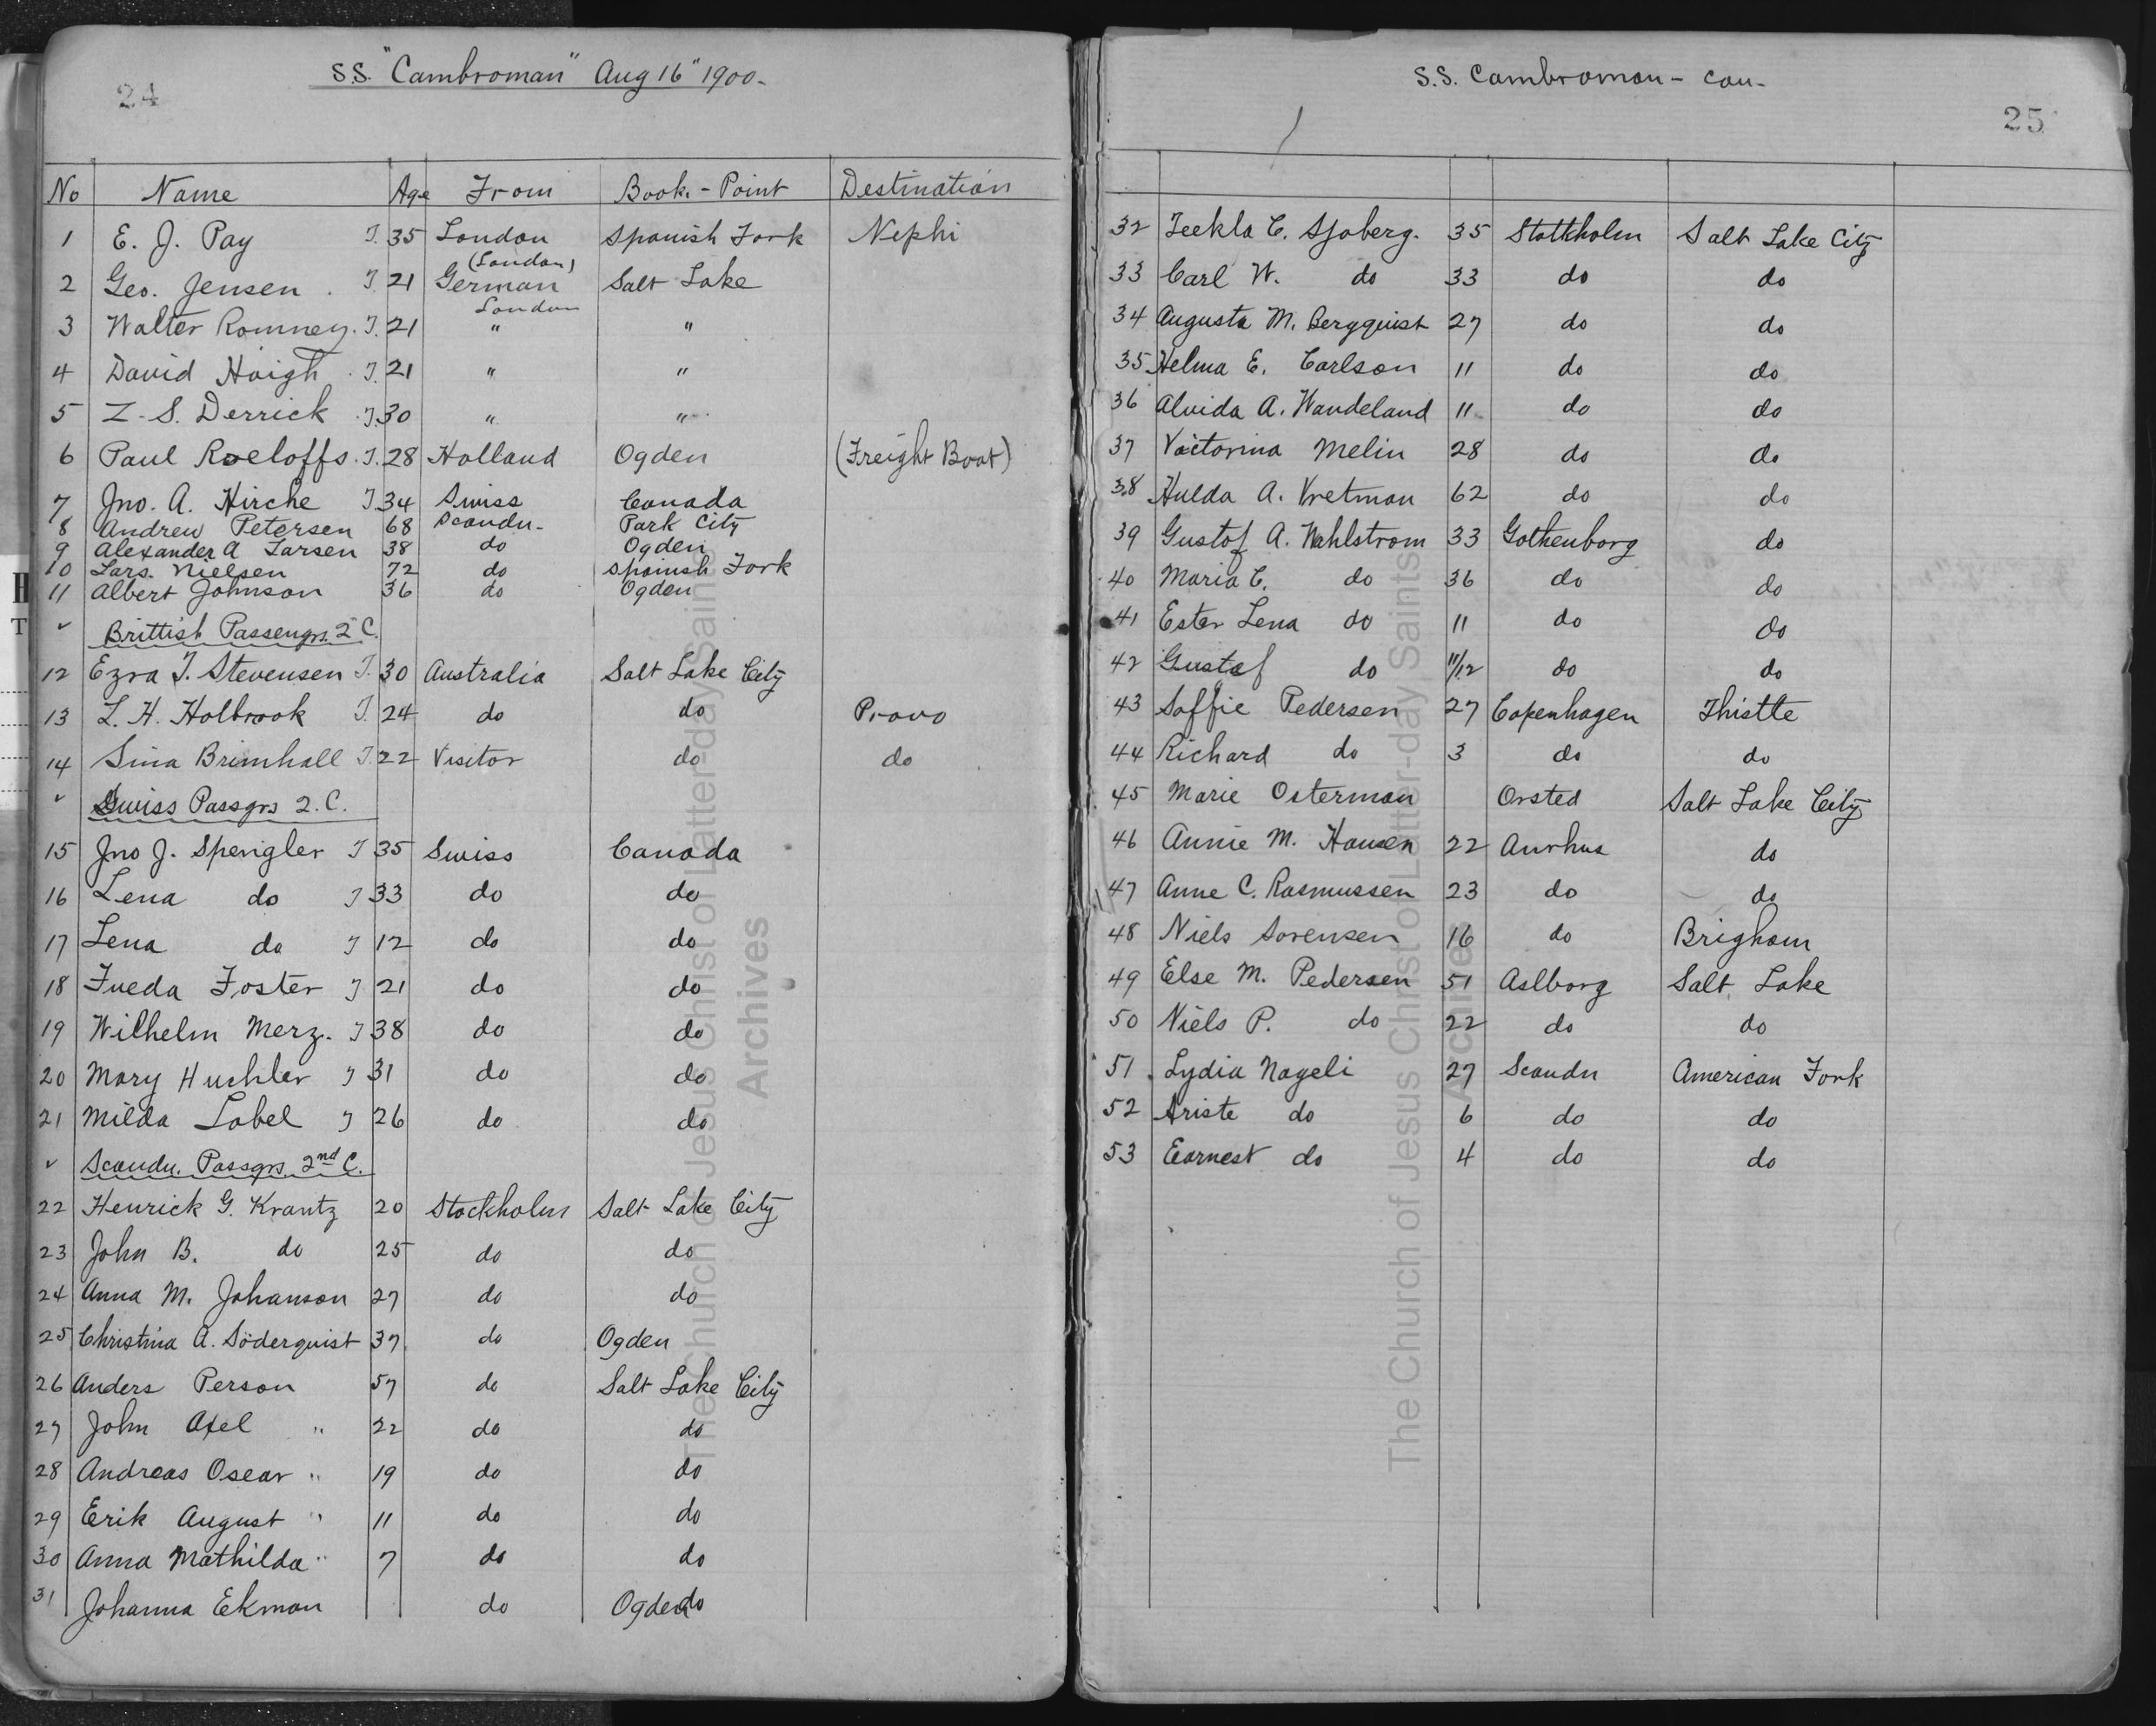 24
S.S. "Cambroman" Aug 16" 1900-
No Name Age From Book.-Point Destination
1 E. J. Pay T. 35 London Spanish Fork Nephi
(London)
2 Geo. Jensen . T. 21 German Salt Lake
London
3 Walter Romney. T. 21 " "
4 David Haigh . T. 21 " "
5 Z. S. Derrick . T. 30 " "
6 Paul Roeloffs. T. 28 Holland Ogden (Freight Boat)
7 Jno. A. Hirche T 34 Swiss Canada
8 Andrew Petersen 68 Scandn- Park City
9 Alexander A Larsen 38 do Ogden
10 Lars. Nielsen 72 do Spanish Fork
11 Albert Johnson 36 do Ogden
✓ Brittish Passengrs. 2 C.
12 Ezra T. Stevensen T. 30 Australia Salt Lake City
13 L. H. Holbrook T. 24 do do Provo
14 Lina Brimhall T. 22 Visitor do do
✓ Swiss Passgrs 2. C.
15 Jno J. Spengler T 35 Swiss Canada
16 Lena do T 33 do do
17 Lena do T 12 do do
18 Fueda Foster T 21 do do
19 Wilhelm Merz. T 38 do do
20 Mary Huchler T 31 do do
21 Milda Lobel T 26 do do
✓ Scandn. Passgrs. 2nd C.
22 Henrick G. Krantz 20 Stockholm Salt Lake City
23 John B. do 25 do do
24 Anna M. Johanson 27 do do
25 Christina A. Söderquist 37 do Ogden
26 Anders Person 57 do Salt Lake City
27 John Axel " 22 do do
28 Andreas Oscar " 19 do do
29 Erik August " 11 do do
30 Anna Mathilda " 7 do do
31 Johanna Ekman do Ogden do
The Church of Jesus Christ of Latter-day Saints
Archives
S.S. Cambroman - con-
25
32 Teekla C. Sjoberg. 35 Stottkholm Salt Lake City
33 Carl W. do 33 do do
34 Augusta M. Bergquist 27 do do
35 Helma E. Carlson 11 do do
36 Alvida A. Wandeland 11 do do
37 Victorina Melin 28 do do
38 Hulda A. Vretman 62 do do
39 Gustof A. Wahlstrom 33 Gothenborg do
40 Maria C. do 36 do do
41 Ester Lena do 11 do do
42 Gustaf do 11/12 do do
43 Soffie Pedersen 27 Copenhagen Thistle
44 Richard do 3 do do
45 Marie Osterman Orsted Salt Lake City
46 Annie M. Hansen 22 Aarhus do
47 Anne C. Rasmussen 23 do do
48 Niels Sorensen 16 do Brigham
49 Else M. Pedersen 51 Aalborg Salt Lake
50 Niels P. do 22 do do
51 Lydia Nageli 27 Scandn American Fork
52 Ariste do 6 do do
53 Earnest do 4 do do
The Church of Jesus Christ of Latter-day Saints
Archives